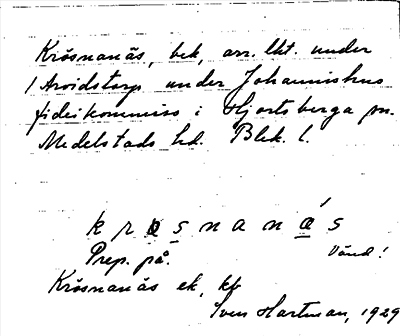 Krösnanäs, bek, arr. lht. under
1 Arvidstorp under Johannishus
fideikommiss i Hjortsberga sn.
Medelstads hd. Blek. l.
k r o s n a n á s
Prep. på. Vänd!
Krösnanäs ek, kb
Sven Hartman, 1929